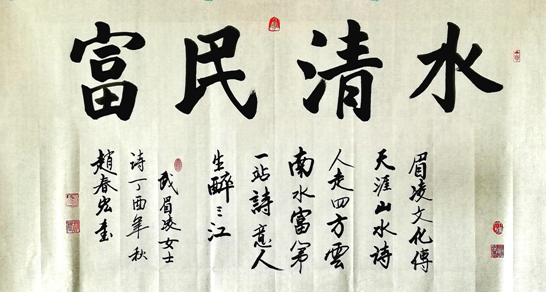 水清民富
眉凌文化傳
天涯山水詩
人走四方雲
南水富第
一站詩意人
生醉三江
武眉凌女士
詩丁酉年秋
趙春宏書